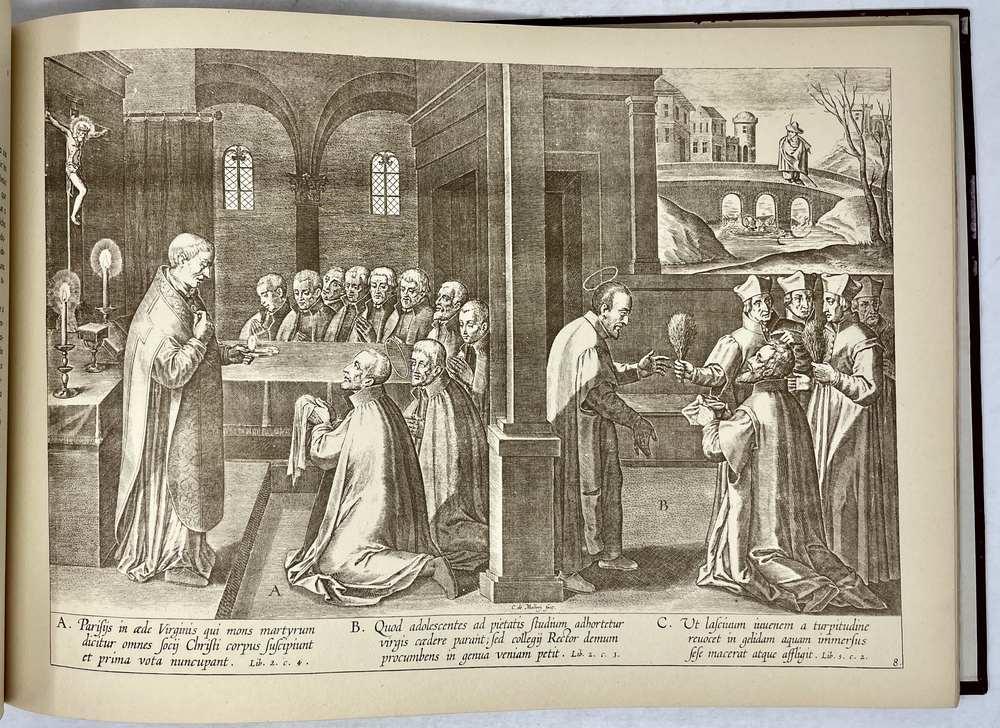 A
B
C. de Mallery fecit.
A. Parisijs in æde Virginis qui mons martyrum
dicitur omnes socij Christi corpus suscipiunt
et prima vota nuncupant. Lib. 2. c. 4.
B. Quod adolescentes ad pietatis studium adhortetur
virgis cædere parant; sed collegij Rector demum
procumbens in genua veniam petit. Lib. 2. c. 3.
C. Ut lasciuum iuuenem a turpitudine
reuocet in gelidam aquam immersus
sese macerat atque affligit. Lib. 5. c. 2.
8